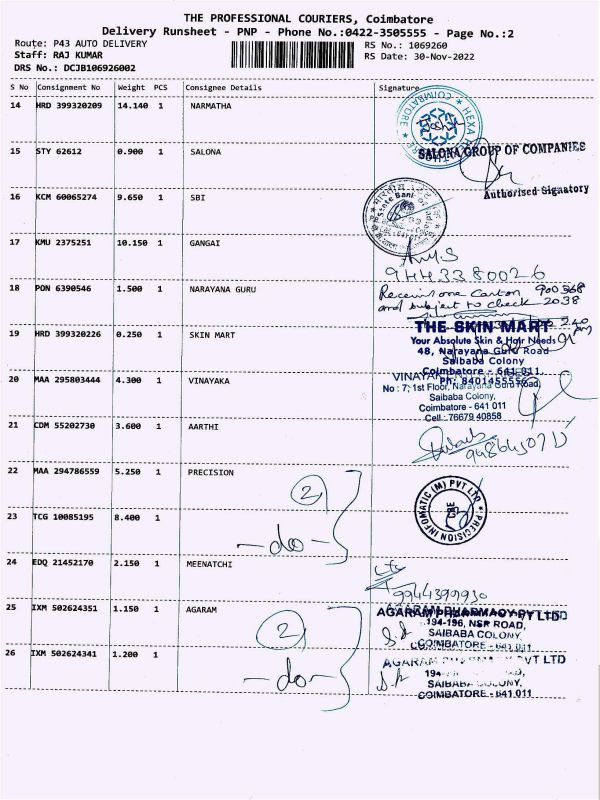 THE PROFESSIONAL COURIERS, Coimbatore
Delivery Runsheet - PNP - Phone No.:0422-3505555 - Page No.:2
Route: P43 AUTO DELIVERY RS No.: 1069260
Staff: RAJ KUMAR RS Date: 30-Nov-2022
DRS No.: DCJB106926002
S No Consignment No Weight PCS Consignee Details Signature
14 HRD 399320209 14.140 1 NARMATHA
COIMBATORE
15 STY 62612 0.900 1 SALONA
SALONA GROUP OF COMPANIES
Authorised Signatory
16 KCM 60065274 9.650 1 SBI
State Bank of India
17 KMU 2375251 10.150 1 GANGAI
9443380026
18 PON 6390546 1.500 1 NARAYANA GURU
Received one Carton 900368
and subject to check 2038
19 HRD 399320226 0.250 1 SKIN MART
THE SKIN MART
Your Absolute Skin & Hair Needs
48, Narayana Guru Road
Saibaba Colony
Coimbatore - 641 011
Ph: 8401455556
20 MAA 295803444 4.300 1 VINAYAKA
No : 7, 1st Floor, Narayana Guru Road,
Saibaba Colony,
Coimbatore - 641 011
Cell : 76679 40858
21 CDM 55202730 3.600 1 AARTHI
22 MAA 294786559 5.250 1 PRECISION
2
PRECISION INFOMATIC (M) PVT LTD
CBE
23 TCG 10085195 8.400 1
-do-
24 EDQ 21452170 2.150 1 MEENATCHI
9944399950
25 IXM 502624351 1.150 1 AGARAM
2
AGARAM PHARMACY PVT LTD
194-196, NSR ROAD,
SAIBABA COLONY,
COIMBATORE - 641 011
26 IXM 502624341 1.200 1
-do-
AGARAM PHARMACY PVT LTD
194-
SAIBABA COLONY,
COIMBATORE - 641 011